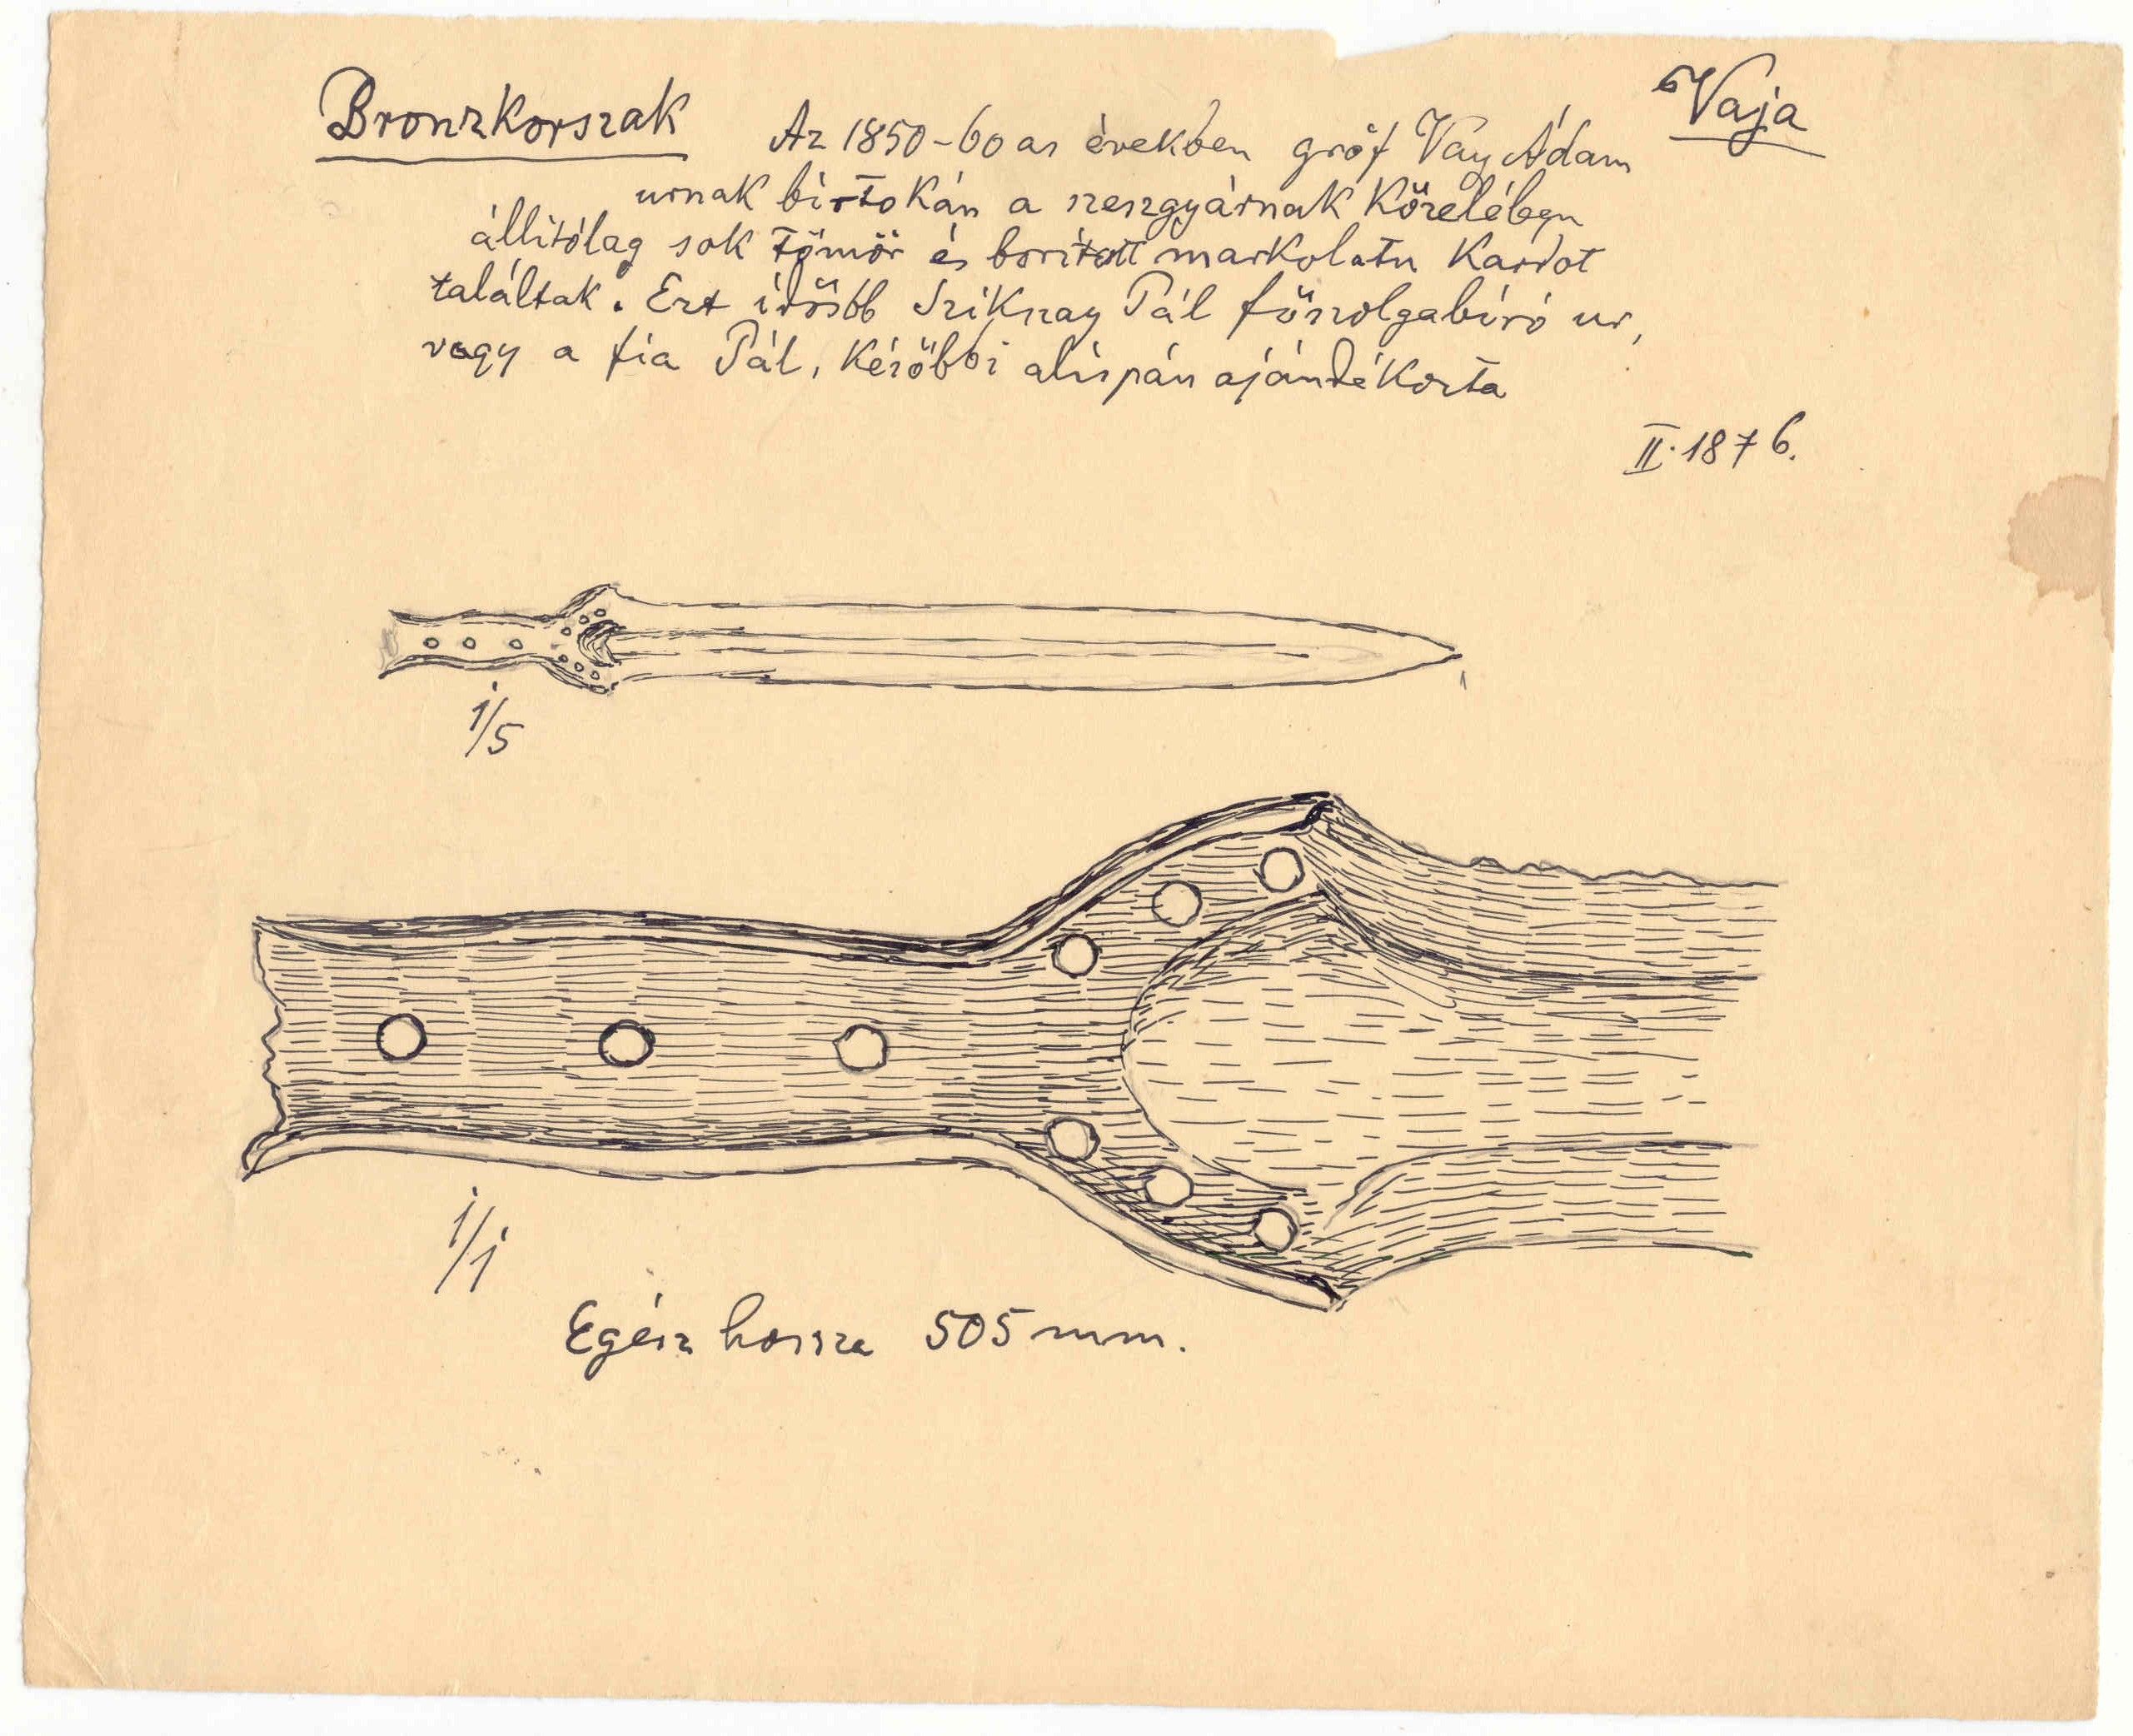 Bronzkorszak
Vaja
Az 1850-60 as években gróf Vay Ádam
urnak birtokán a szeszgyárnak közelében
állitólag sok tömör és boritott markolatu kardot
találtak. Ezt idősb Sziknay Pál főszolgabíró ur,
vagy a fia Pál, késöbbi alispán ajándékozta
II. 1876.
1/5
1/1
Egész hossza 505 mm.